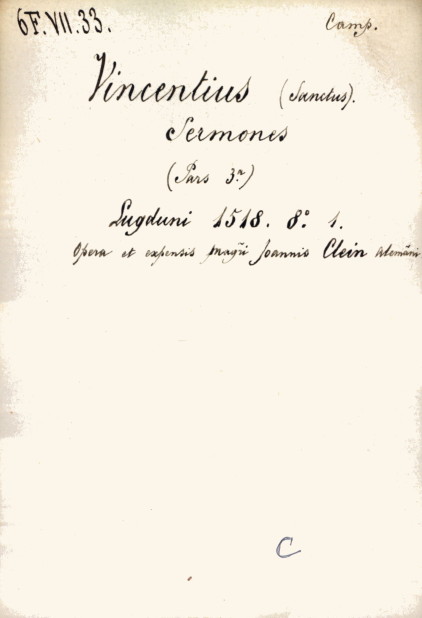 6F.VII.33.
Camp.
Vincentius (Sanctus).
Sermones
(Pars 3ª)
Lugduni 1518. 8º 1.
Opera et expensis magr̃i Joannis Clein alemãni
C